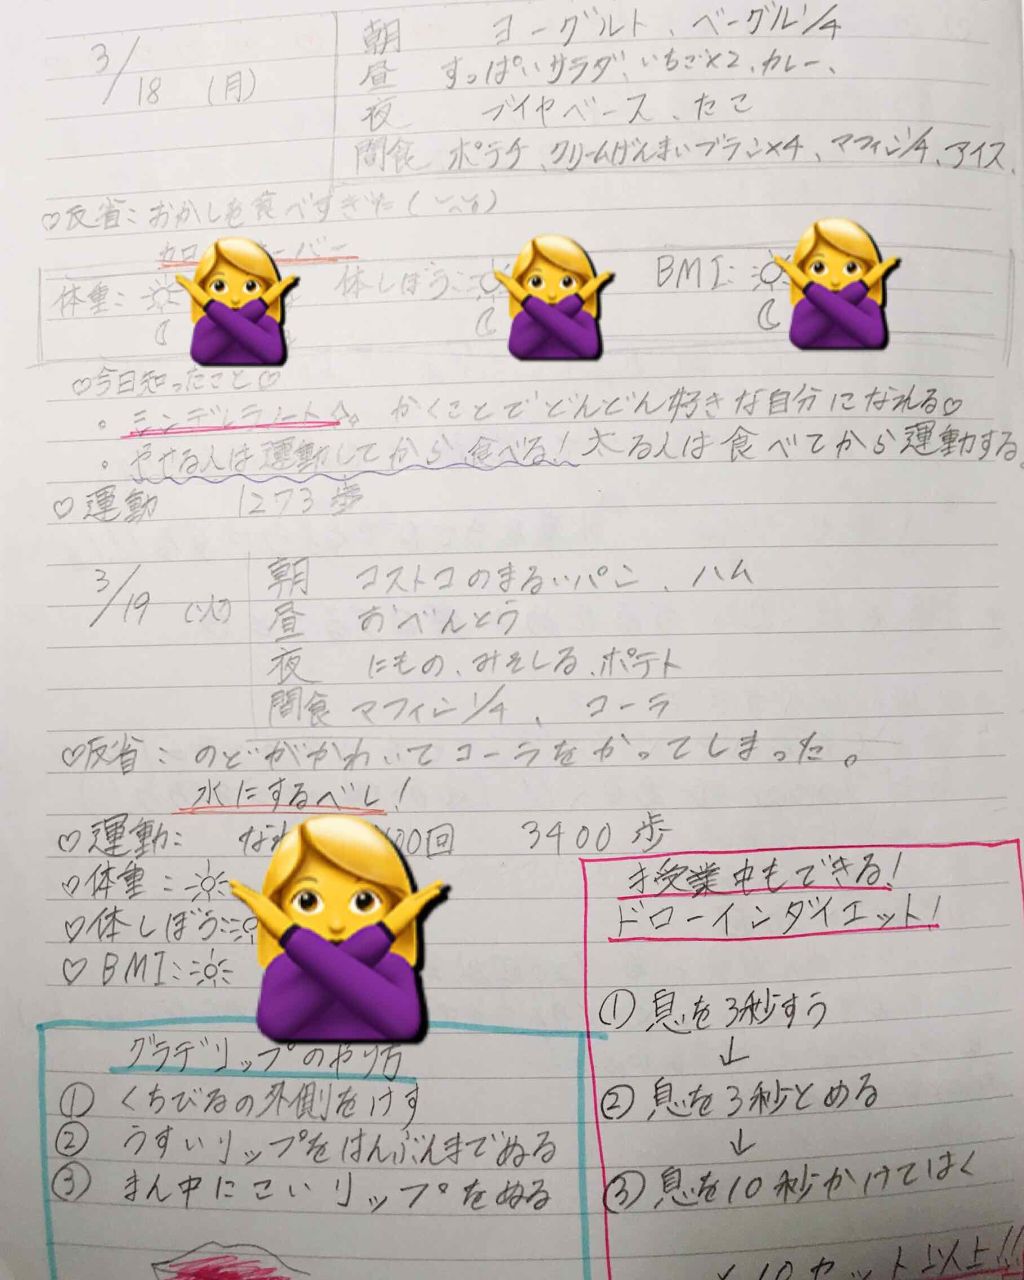 3/18 (月)
朝 ヨーグルト、ベーグル1/4
昼 すっぱいサラダ、いちご×2、カレー、
夜 ブイヤベース、たこ
間食 ポテチ、クリームげんまいブラン×4、マフィン1/4、アイス、
♡反省：おかしを食べすぎた
カロ ーバー
体重： 体しぼう： BMI：
♡今日知ったこと♡
・シンデレラノート☆。かくことでどんどん好きな自分になれる♡
・やせる人は運動してから食べる！太る人は食べてから運動する。
♡運動 1273歩
3/19 (火)
朝 コストコのまるいパン、ハム
昼 おべんとう
夜 にもの、みそしる、ポテト
間食 マフィン1/4、コーラ
♡反省：のどがかわいてコーラをかってしまった。
水にするべし！
♡運動： な 00回 3400歩
♡体重：
♡体しぼう：
♡BMI：
グラデリップのやり方
① くちびるの外側をけす
② うすいリップをはんぶんまでぬる
③ まん中にこいリップをぬる
授業中もできる！
ドローインダイエット！
① 息を3秒すう
↓
② 息を3秒とめる
↓
③ 息を10秒かけてはく
×10セット以上!!